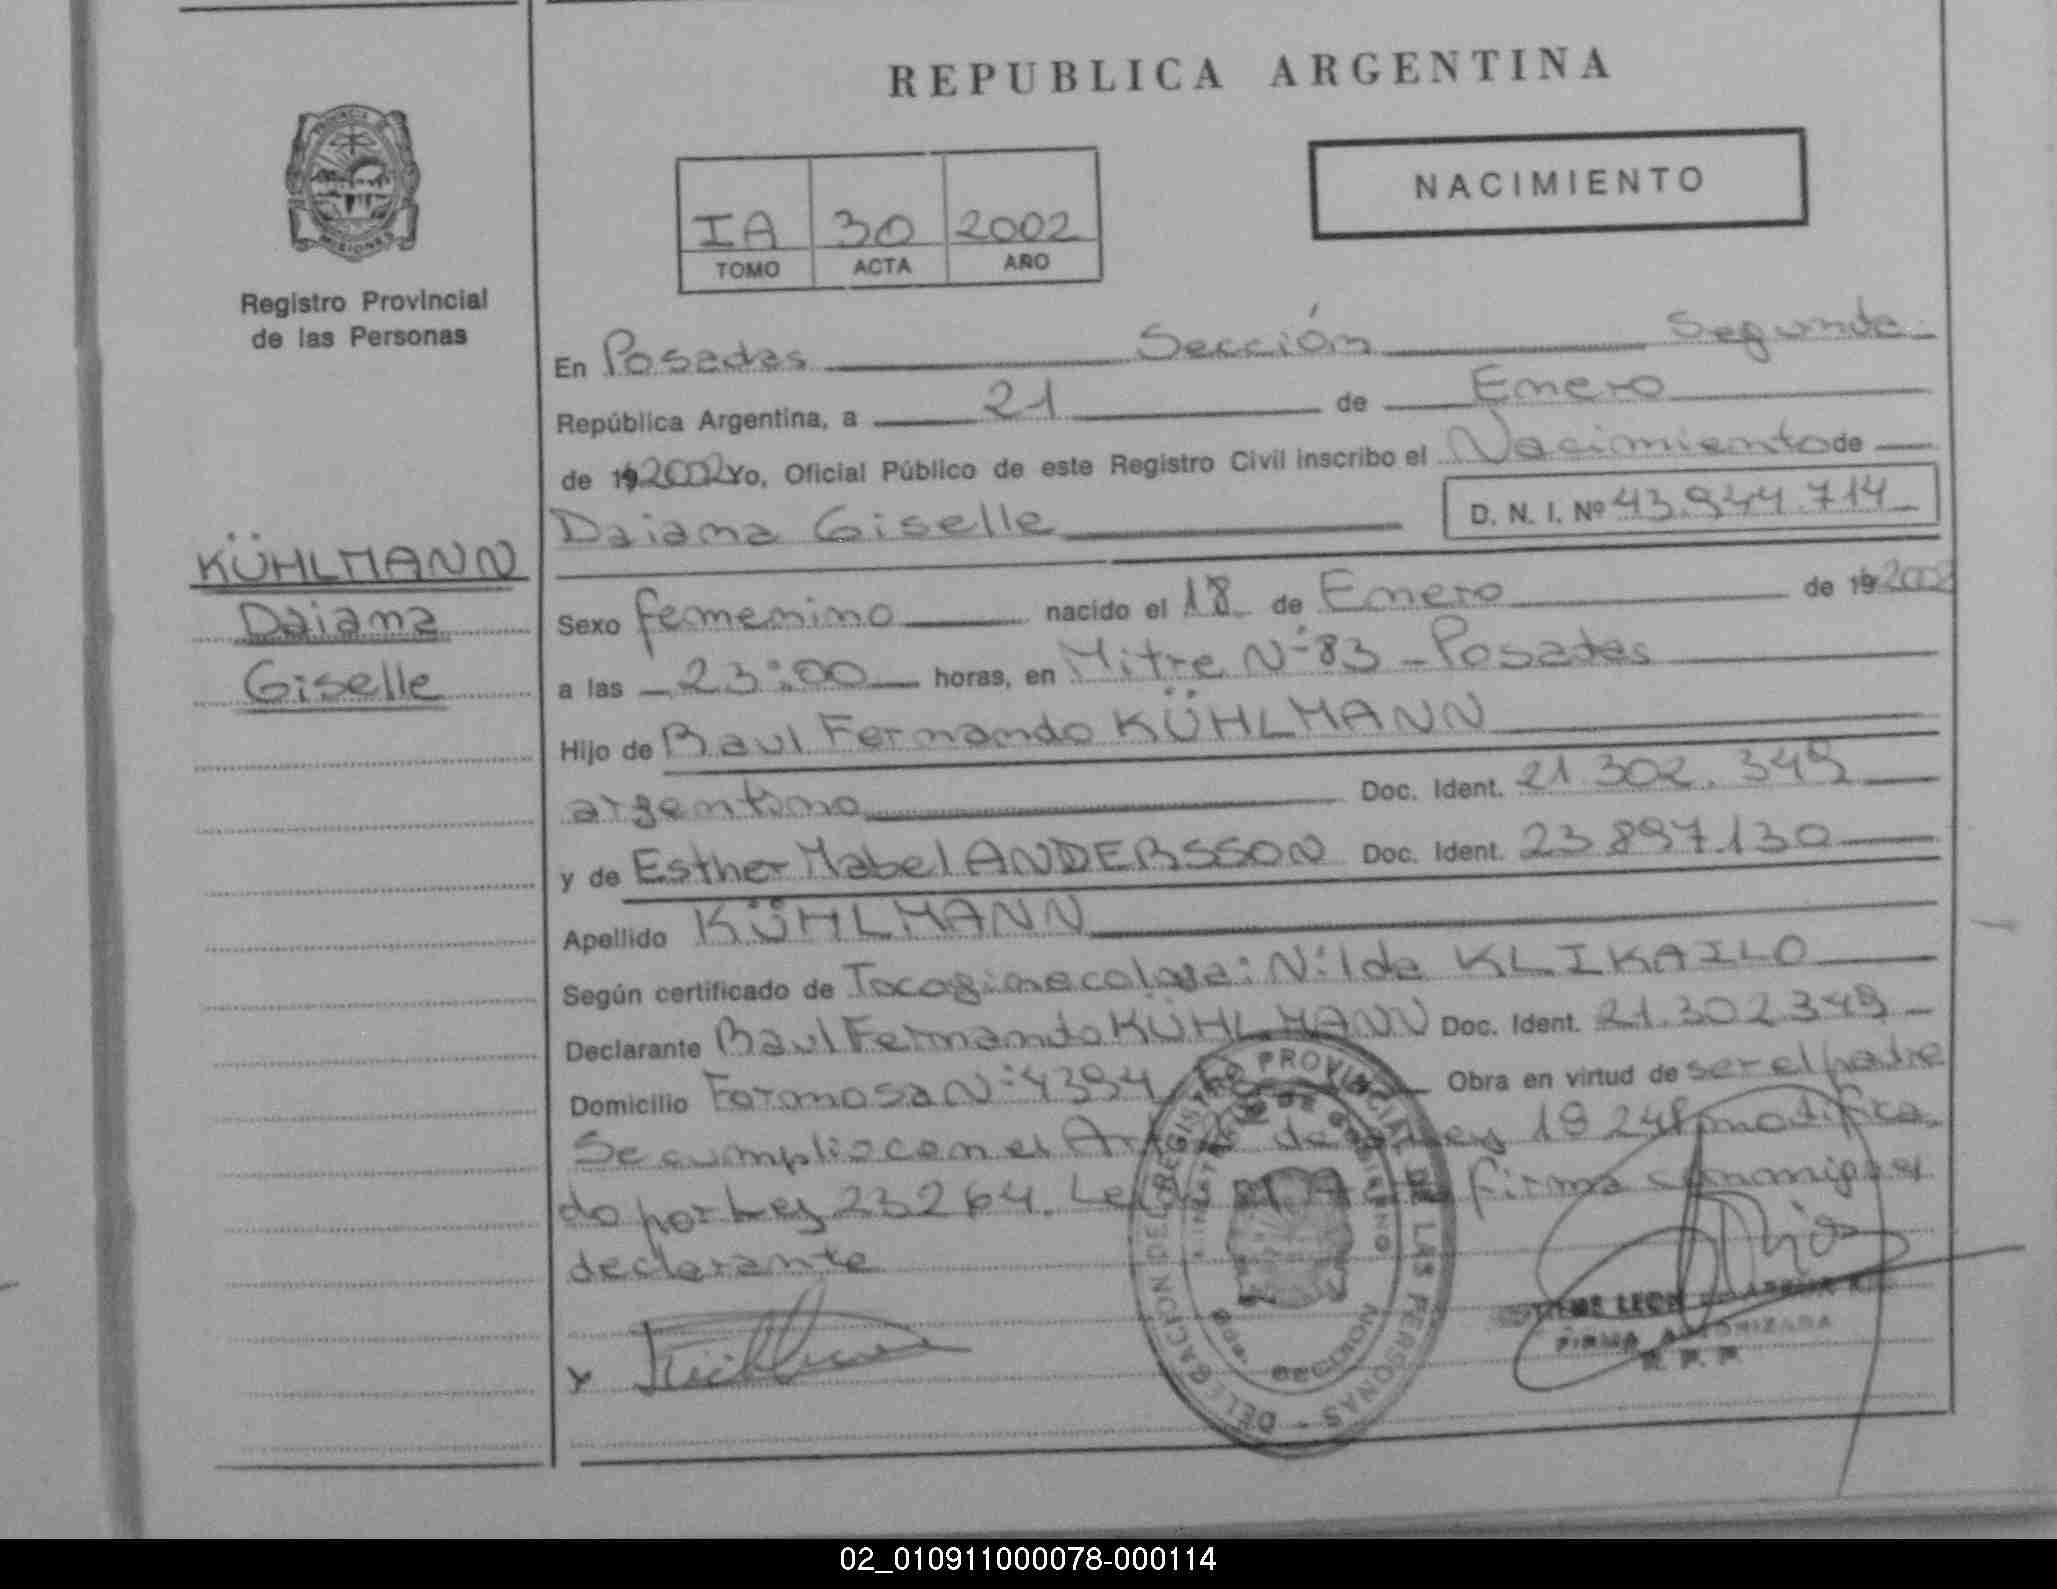 REPUBLICA ARGENTINA
NACIMIENTO
IA 30 2002
TOMO ACTA AÑO
PROVINCIA DE
MISIONES
Registro Provincial
de las Personas
KÜHLMANN
Daiana
Giselle
En Posadas Sección Segunda
República Argentina, a 21 de Enero
de 19 2002 Yo, Oficial Público de este Registro Civil inscribo el Nacimiento de
Daiana Giselle D. N. I. Nº 43.944.714
Sexo femenino nacido el 18 de Enero de 19 2002
a las 23:00 horas, en Mitre Nº 83 - Posadas
Hijo de Raul Fernando KÜHLMANN
argentino Doc. Ident. 21.302.349
y de Esther Mabel ANDERSSON Doc. Ident. 23.897.130
Apellido KÜHLMANN
Según certificado de Tocoginecologa: Nilda KLIKAILO
Declarante Raul Fernando KÜHLMANN Doc. Ident. 21.302.349
Domicilio Formosa Nº 4394 Obra en virtud de ser el padre
Se cumplio con el Art. de Ley 18248 modifica-
do por Ley 23264. Leida el Acta firma conmigo el
declarante
DELEGACION DEL REGISTRO PROVINCIAL DE LAS PERSONAS
MINISTERIO DE GOBIERNO
LEON
FIRMA AUTORIZADA
R. P. P.
02_010911000078-000114